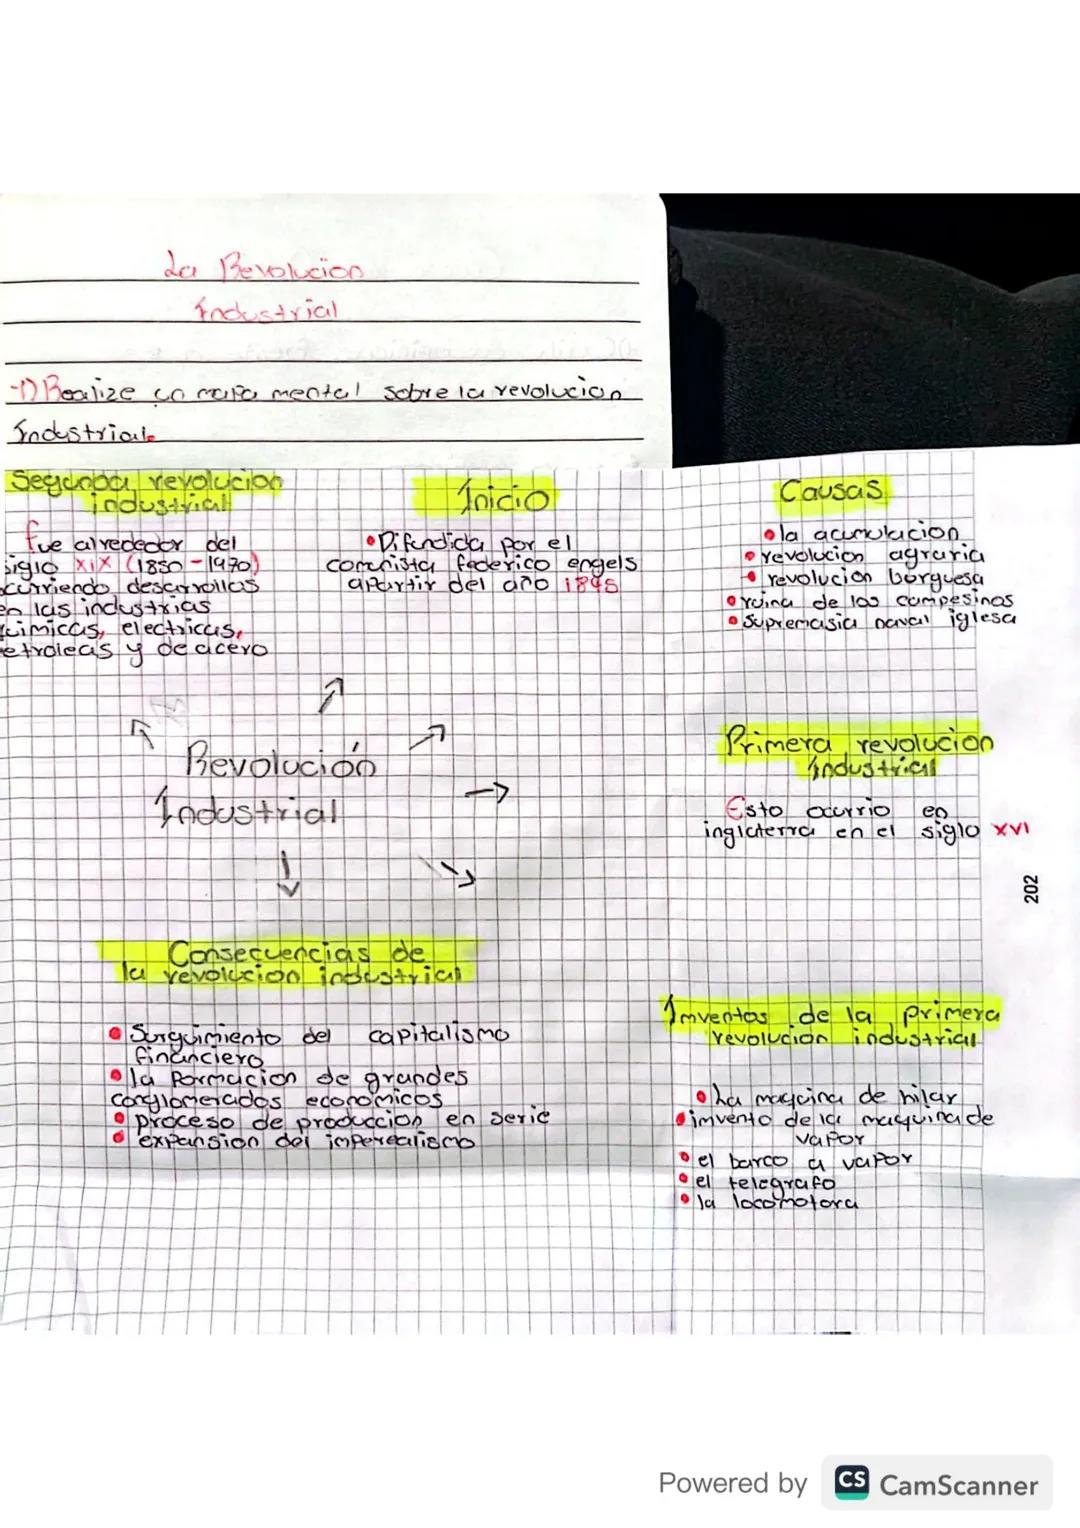 La Revolucion
Industrial
1) Realize un mapa mental sobre la revolucion
Industrial.
Segunda revolucion
industrial
fue alrededor del
siglo XIX (1850-1970)
ocurriendo desarrollas
en las industrias
quimicas, electricas,
etroleas y de acero
Inicio
Difundida por el
comunista federico engels
apartir del año 1845
Causas
la acumulacion
revolucion agraria
revolucion burguesa
ruina de los campesinos
supremasia naval iglesa
Revolución
Industrial
Primera revolucion
industrial
Esto ocurrio en
inglaterra en el siglo XVI
202
Consecuencias de
la revolucion industrial
Surguimiento del capitalismo
financiero
la formacion de grandes
conglomerados economicos
proceso de produccion en serie
expansion del imperealismo
Imventos de la primera
revolucion industrial
La maqcina de hilar
imvento de la maquina de
vapor
el barco a vapor
el telegrafo
la locomotora
Powered by CS CamScanner